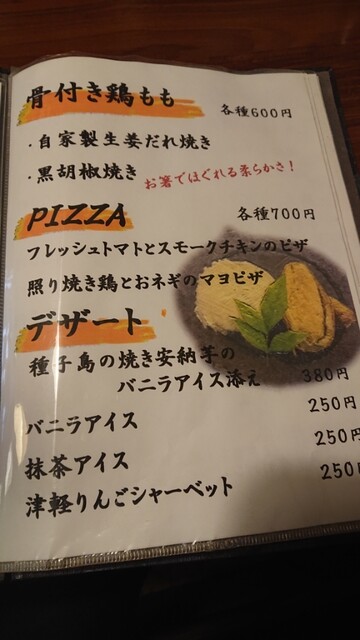 骨付き鶏もも 各種600円
・自家製生姜だれ焼き
・黒胡椒焼き お箸でほぐれる柔らかさ!
PIZZA 各種700円
フレッシュトマトとスモークチキンのピザ
照り焼き鶏とおネギのマヨピザ
デザート
種子島の焼き安納芋の
バニラアイス添え 380円
バニラアイス 250円
抹茶アイス 250円
津軽りんごシャーベット 250円